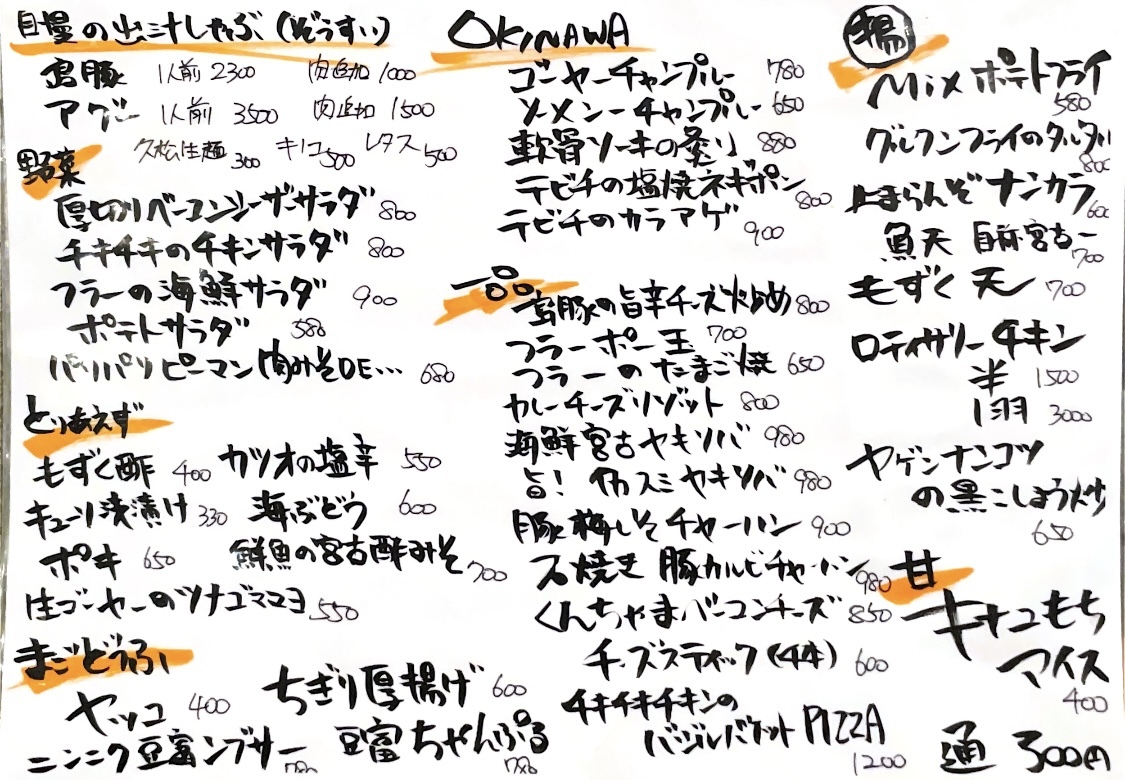 自慢の出汁しゃぶ(ぞうすい)
島豚 1人前 2300 肉追加 1000
アグー 1人前 3500 肉追加 1500
久松生麺 300 キノコ 500 レタス 500
野菜
厚切りベーコンシーザーサラダ 800
チキチキのチキンサラダ 800
フラーの海鮮サラダ 900
ポテトサラダ 580
パリパリピーマン肉みそDE… 680
とりあえず
もずく酢 400 カツオの塩辛 550
キューリ浅漬け 330 海ぶどう 600
ポキ 650 鮮魚の宮古酢みそ 700
生ゴーヤーのツナゴママヨ 550
まごとうふ
ヤッコ 400 ちぎり厚揚げ 600
ニンニク豆富ンブサー 780 豆富ちゃんぷる 780
OKINAWA
ゴーヤーチャンプルー 780
ソーメンーチャンプルー 650
軟骨ソーキの炙り 880
テビチの塩焼ネギポン 800
テビチのカラアゲ 900
一品
島豚の旨辛チーズ炒め 800
フラーポー玉 700
フラーのたまご焼 650
カレーチーズリゾット 800
海鮮宮古ヤキソバ 980
旨! イカスミヤキソバ 980
豚と梅しそチャーハン 900
石焼き 豚カルビチャーハン 980
くんちゃまベーコンチーズ 850
チーズスティック(4本) 600
チキチキチキンの
バジルバケットPIZZA 1200
揚
Mixポテトフライ 580
グルクンフライのタルタル 800
止まらんぞナンカラ 600
魚天 自称宮古一 700
もずく天 700
ロティサリーチキン
半 1500
1羽 3000
ヤゲンナンコツ
の黒こしょう炒 650
甘
キナコもち
アイス 400
通 300円